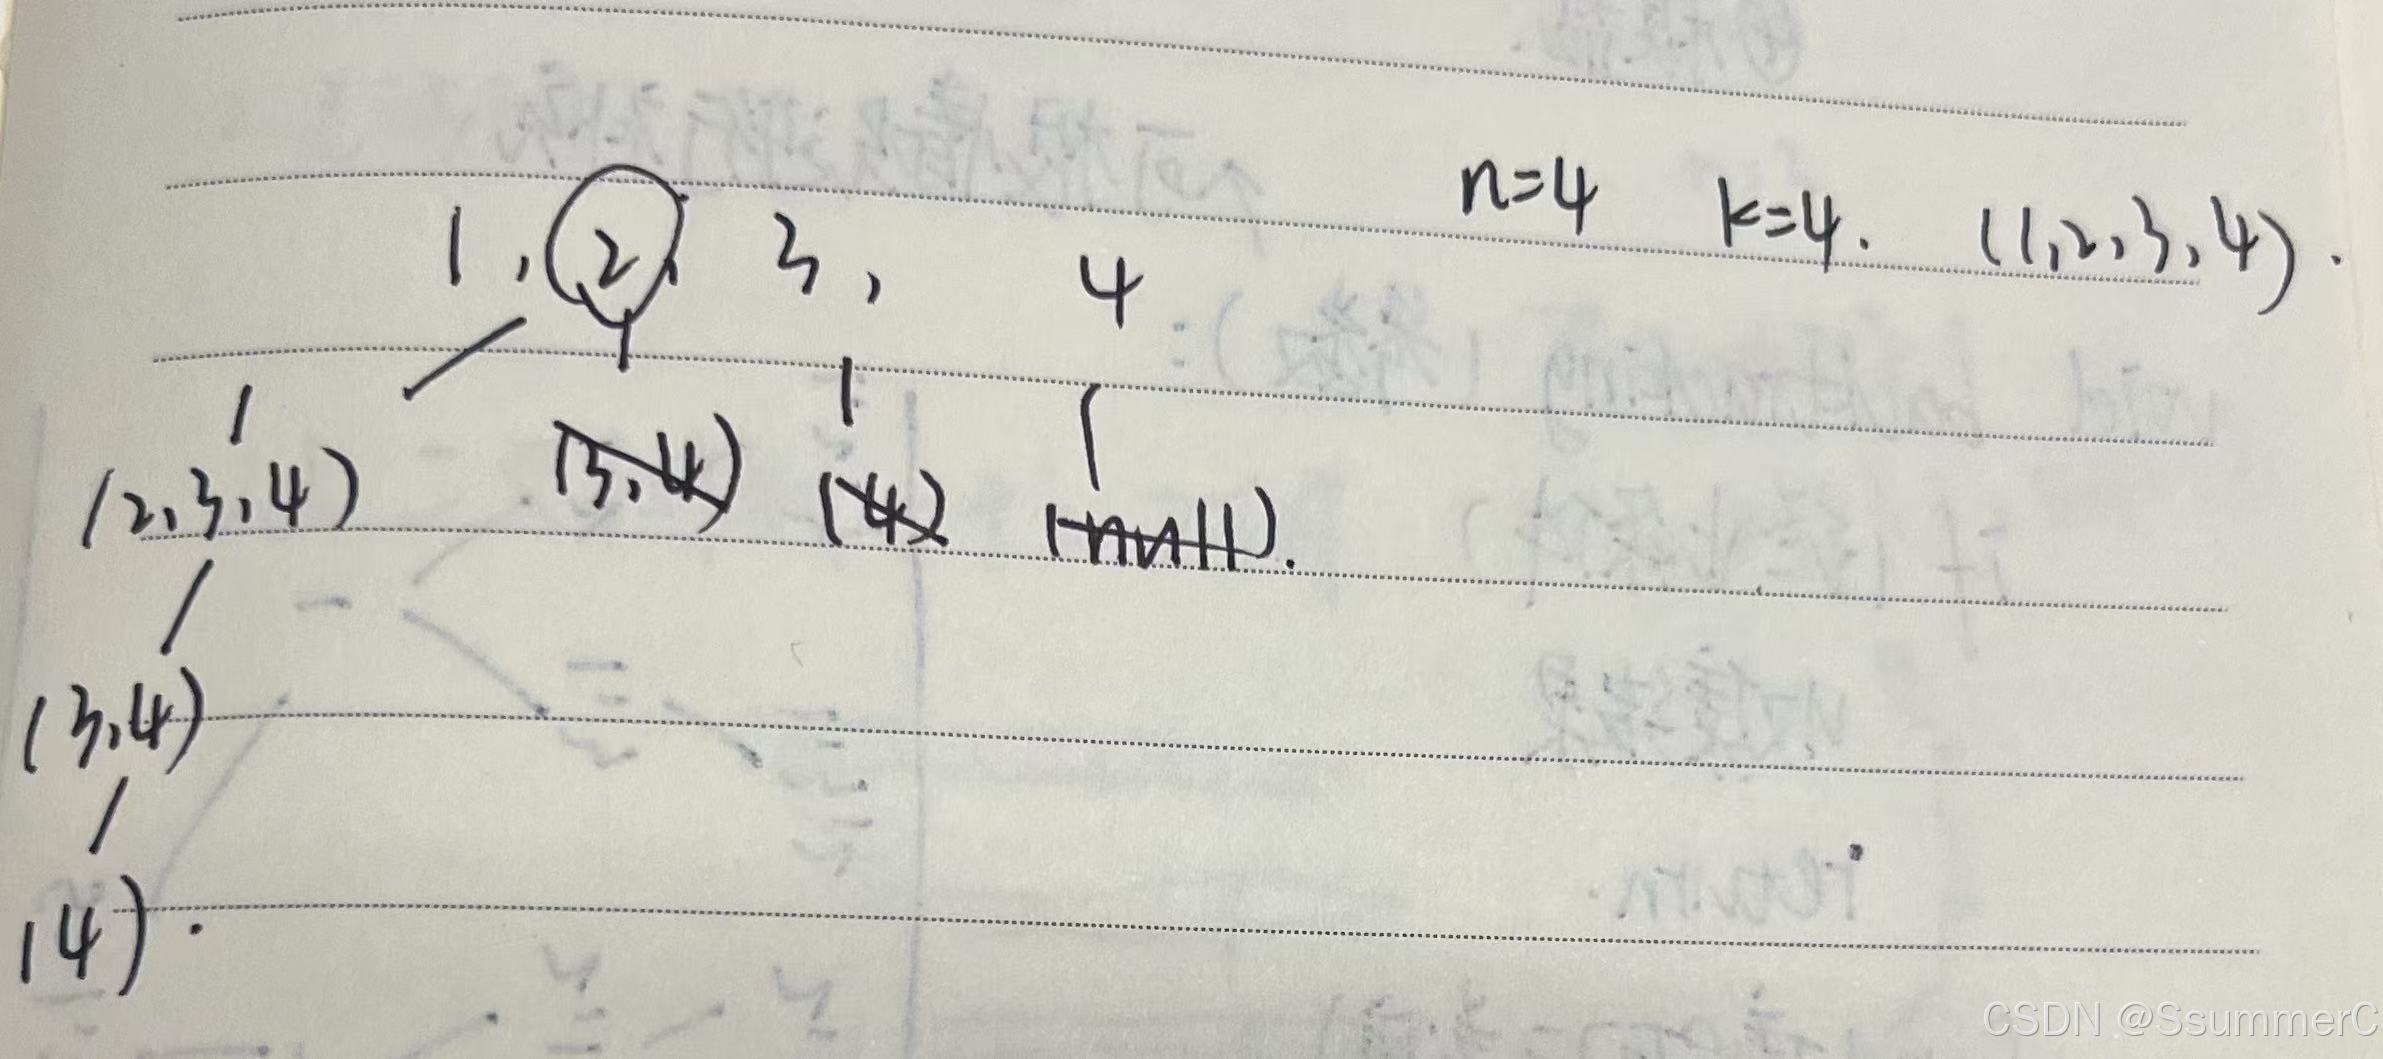 n=4 k=4. (1,2,3,4).
1, 2, 3, 4
(2,3,4) (3,4) (4) (null).
(3,4)
(4).
CSDN @SsummerC